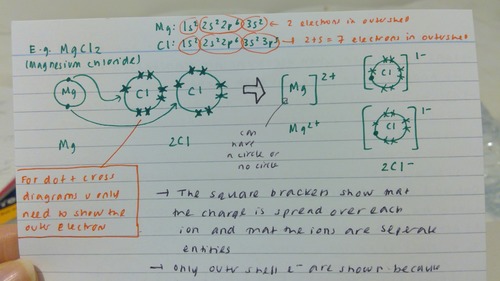 Mg: 1s² 2s²2p⁶ 3s² ← 2 electrons in outer shell
Cl: 1s² 2s²2p⁶ 3s²3p⁵ → 2+5 = 7 electrons in outer shell
E.g. MgCl2
(Magnesium chloride)
Mg Cl Cl ⇨ [Mg]²⁺ [Cl]¹⁻
[Cl]¹⁻
Mg 2Cl Mg²⁺ 2Cl⁻
can
have
a circle or
no circle
For dot + cross
diagrams u only
need to show the
outer electron
→ The square brackets show that
the charge is spread over each
ion and that the ions are seperate
entities
→ only outer shell e⁻ are shown because